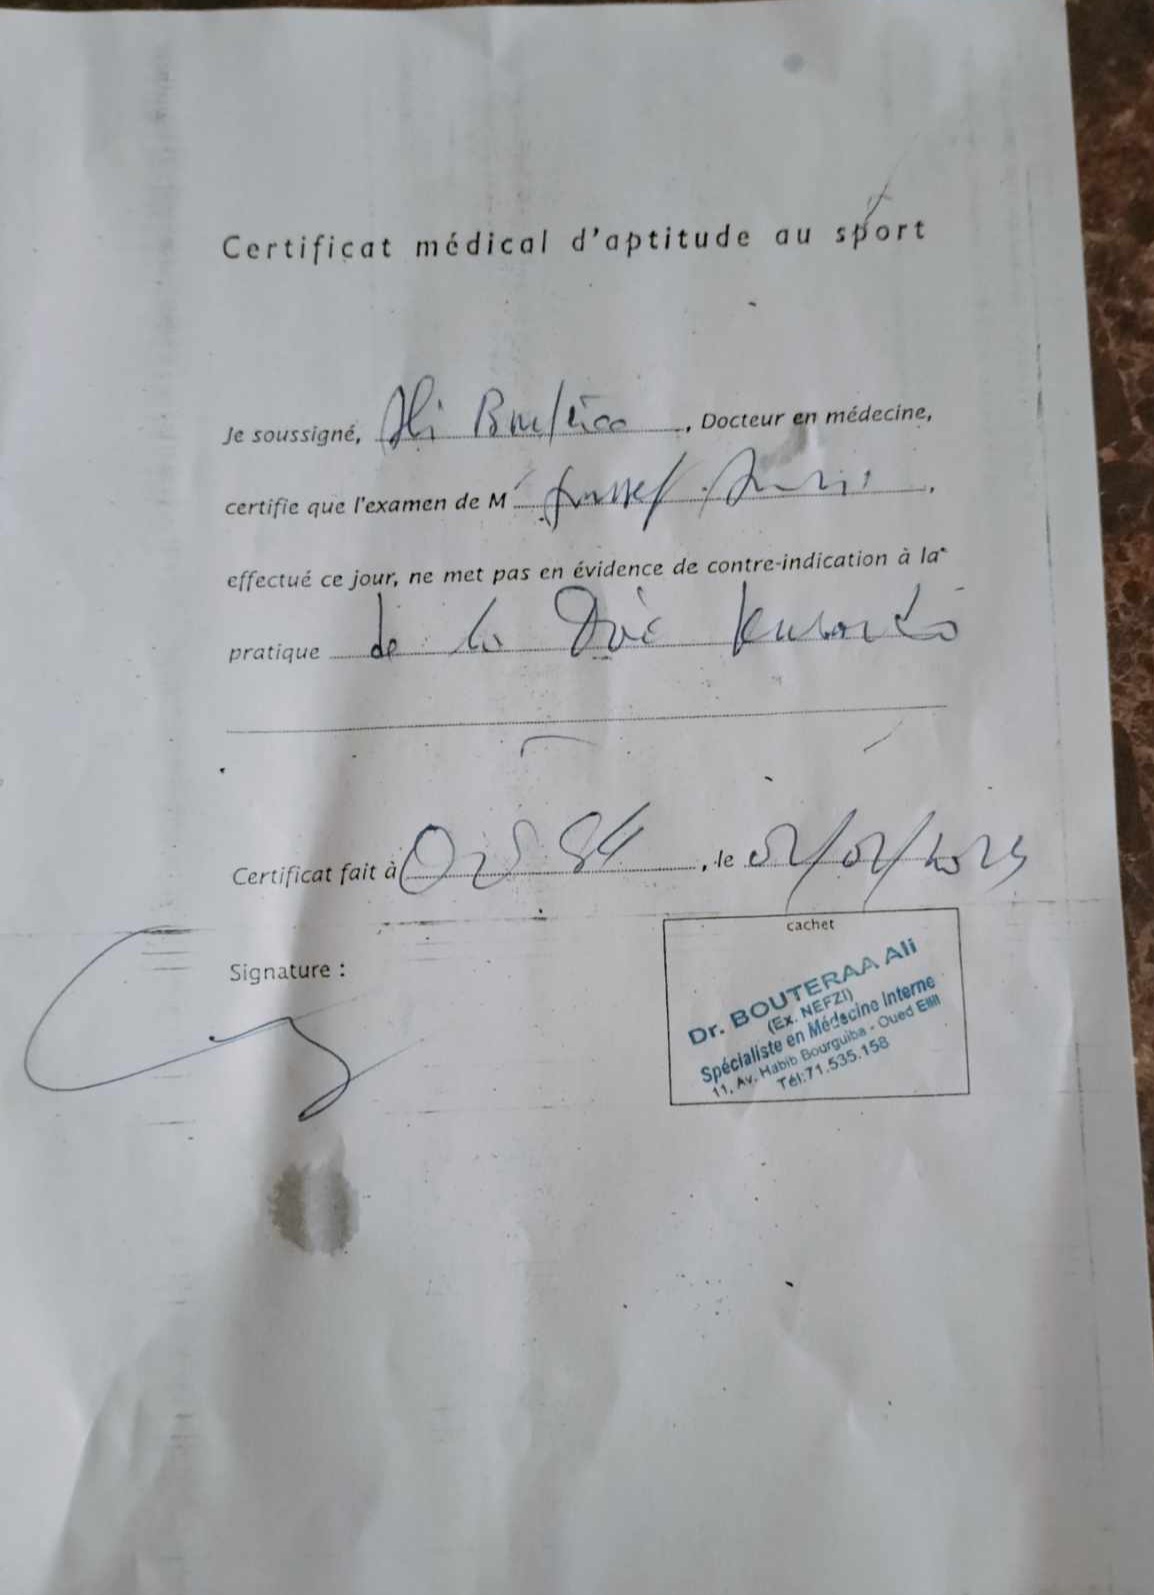 Certificat médical d'aptitude au sport
Je soussigné, Ali, Docteur en médecine,
certifie que l'examen de M
effectué ce jour, ne met pas en évidence de contre-indication à la
pratique de la
Certificat fait à, le
cachet
Signature :
Dr. BOUTERAA Ali
(Ex. NEFZI)
Spécialiste en Médecine Interne
11, Av. Habib Bourguiba - Oued Ellil
Tél:71.535.158